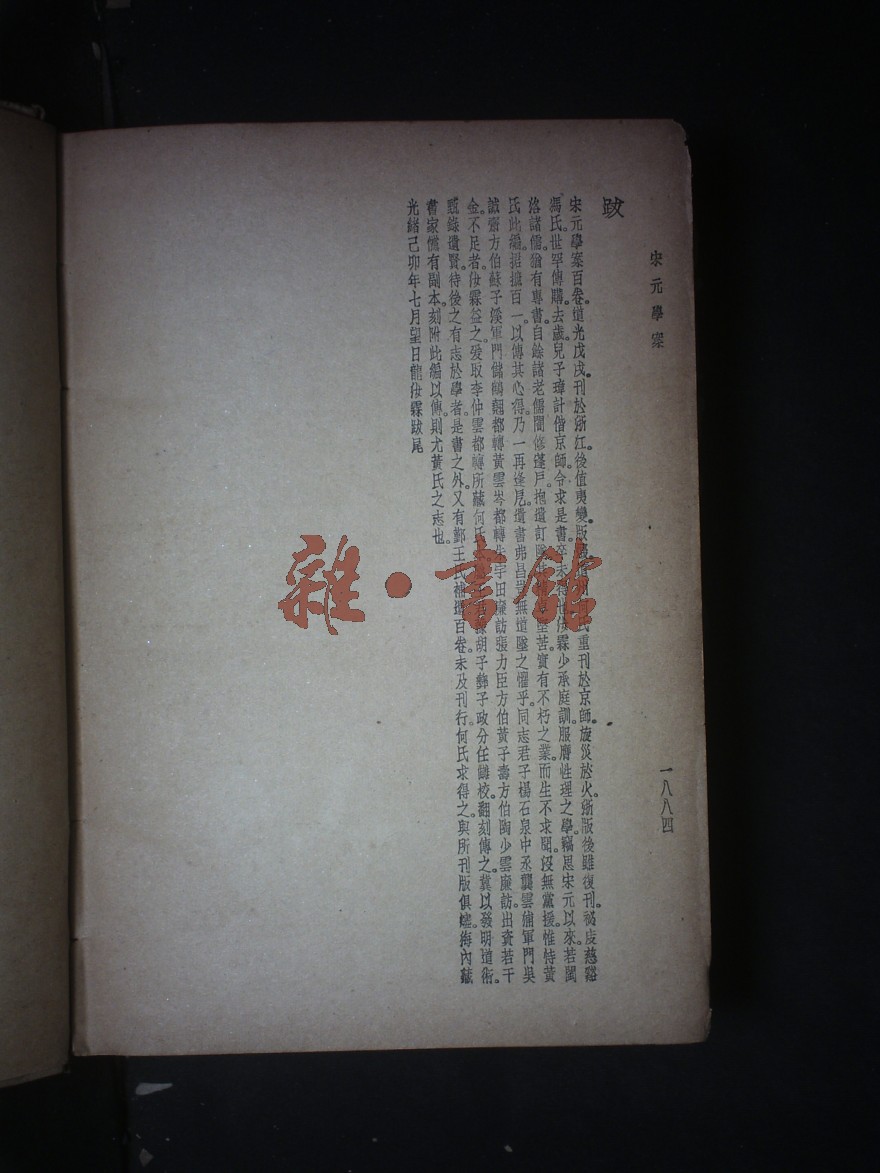 宋元學案
一八八四
跋
宋元學案百卷。道光戊戌。刊於浙江。後值夷變。版燬。 重刊於京師。旋災於火。浙版後雖復刊。祕庋慈谿
馮氏。世罕傳購。去歲。兒子璋計偕京師。令求是書。卒未得也。汝霖少承庭訓。服膺性理之學。竊思宋元以來。若閩
洛諸儒。猶有專書。自餘諸老儒闇修蓬戶。抱遺訂墜。 堅苦。實有不朽之業。而生不求聞。沒無黨援。惟恃黃
氏此編。掇摭百一。以傳其心得。乃一再逢厄。遺書弗昌。 無道墜之懼乎。同志君子楊石泉中丞龔雲浦軍門吳
誠齋方伯蘇子溪軍門儲鶴翹都轉黃雲岑都轉朱宇田廉訪張力臣方伯黃子壽方伯陶少雲廉訪。出資若干
金。不足者。汝霖益之。爰取李仲雲都轉所藏何氏 胡子彝子政分任讎校。翻刻傳之。冀以發明道術。
甄錄遺賢。待後之有志於學者。是書之外。又有鄞王氏補遺百卷。未及刊行。何氏求得之。與所刊版俱燼。海內藏
書家儻有副本。刻附此編以傳。則尤黃氏之志也。
光緒己卯年七月望日龍汝霖跋尾
雜·書館